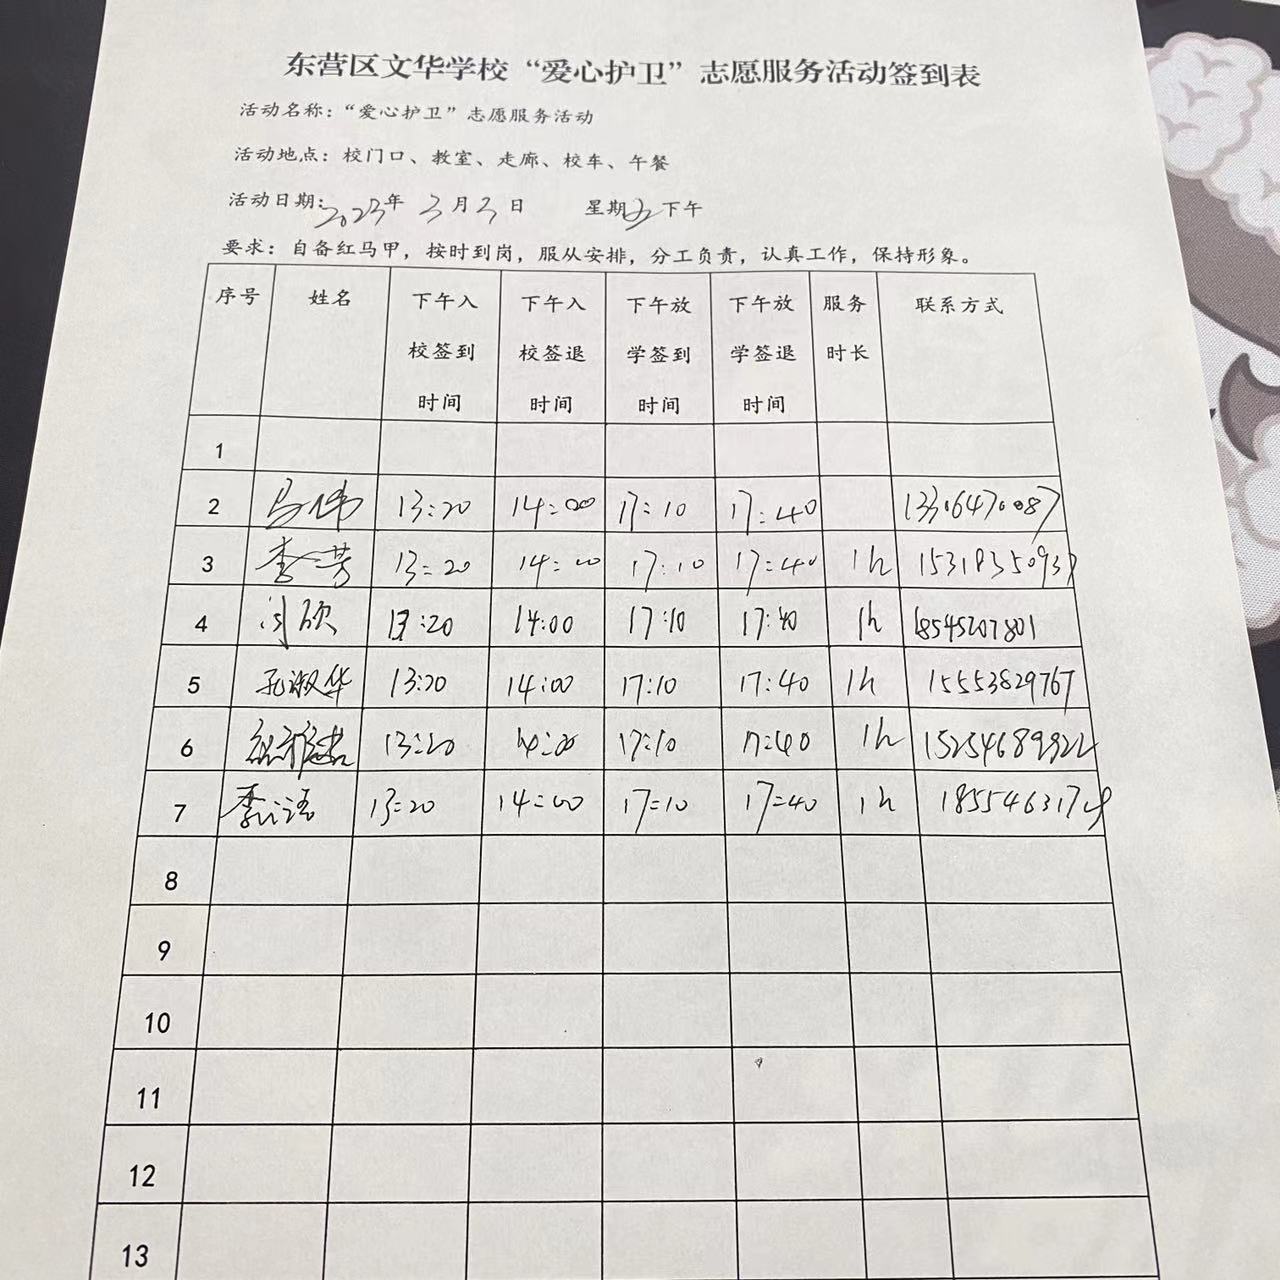 东营区文华学校“爱心护卫”志愿服务活动签到表
活动名称：“爱心护卫”志愿服务活动
活动地点：校门口、教室、走廊、校车、午餐
活动日期：2023年 3月3日 星期五下午
要求：自备红马甲，按时到岗，服从安排，分工负责，认真工作，保持形象。
序号 姓名 下午入校签到时间 下午入校签退时间 下午放学签到时间 下午放学签退时间 服务时长 联系方式
1
2 马伟 13:20 14:00 17:10 17:40 13306470087
3 李芳 13:20 14:00 17:10 17:40 1h 15318350937
4 13:20 14:00 17:10 17:40 1h 18545207801
5 孔淑华 13:20 14:00 17:10 17:40 1h 15553829767
6 13:20 14:00 17:10 17:40 1h 15254689922
7 13:20 14:00 17:10 17:40 1h
8
9
10
11
12
13